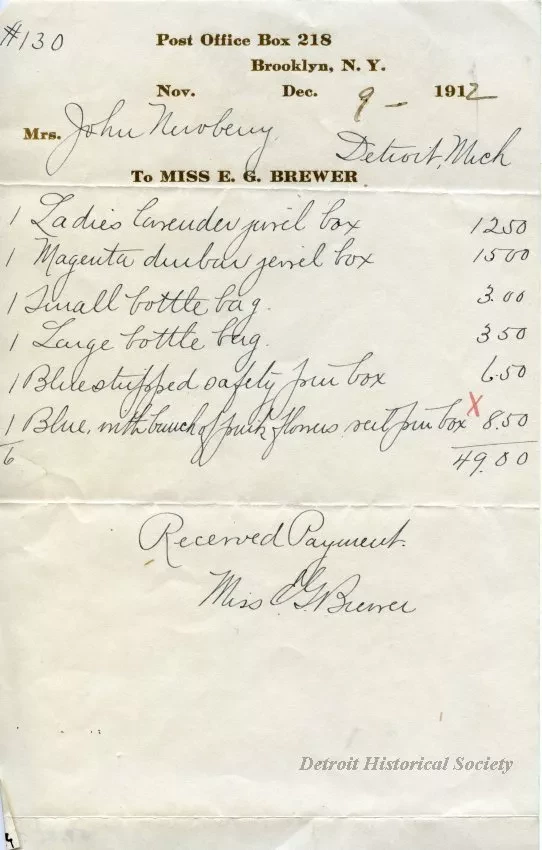 #130
Post Office Box 218
Brooklyn, N. Y.
Nov. Dec. 9 - 1912
Mrs. John Newberry
Detroit, Mich
To MISS E. G. BREWER
1 Ladies lavender jewel box 12 50
1 Magenta durbar jewel box 15 00
1 Small bottle bag. 3.00
1 Large bottle bag. 3 50
1 Blue stripped safety pin box 6.50
1 Blue, with bunch of pink flowers veil pin box X 8.50
6 49.00
Received Payment.
Miss E G Brewer
Detroit Historical Society